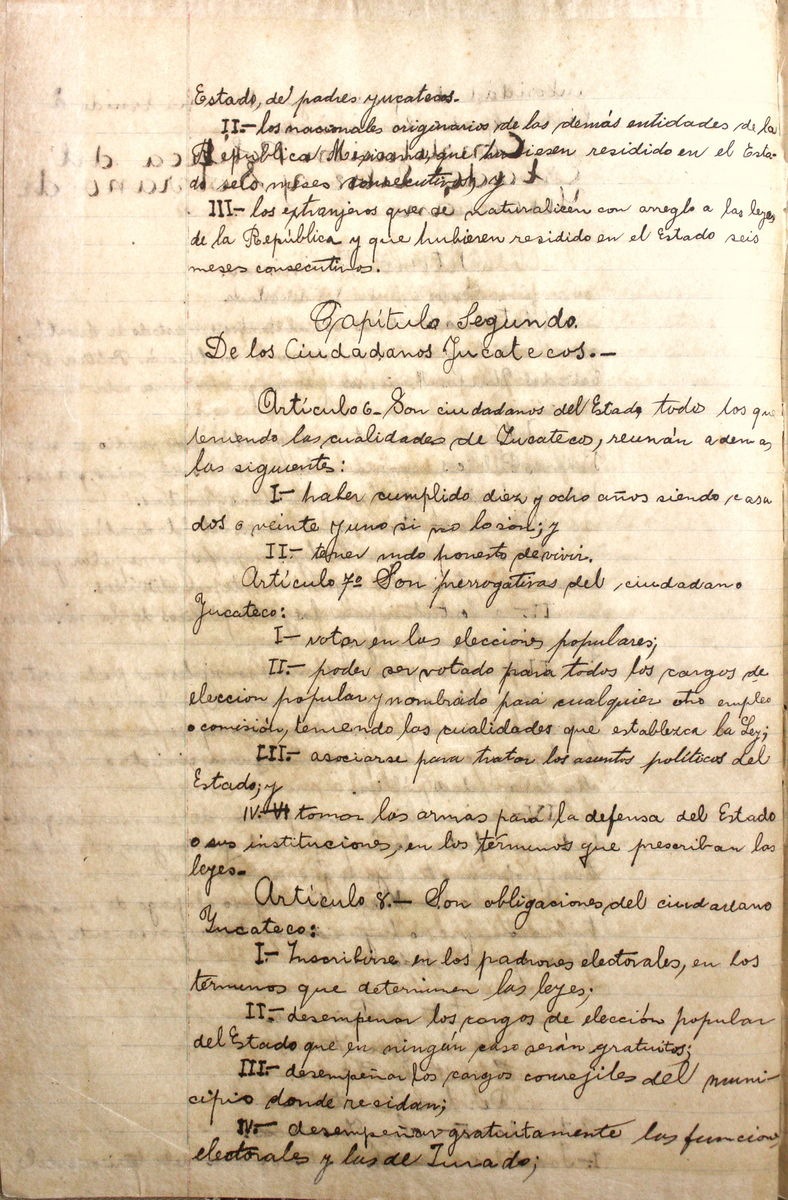 Estado, de padres yucatecos.
II.- los nacionales originarios de las demás entidades de la
República Mexicana, que hubiesen residido en el Esta-
do seis meses consecutivos, y
III.- los extranjeros que se naturalicen con arreglo a las leyes
de la República y que hubieren residido en el Estado seis
meses consecutivos.
Capítulo Segundo.
De los Ciudadanos Yucatecos.-
Artículo 6- Son ciudadanos del Estado todo los que
teniendo las cualidades de Yucateco, reunán ademas
las siguientes:
I.- haber cumplido diez y ocho años siendo casa
dos o veinte y uno si no lo son; y
II.- tener modo honesto de vivir.
Artículo 7º Son prerrogativas del ciudadano
Yucateco:
I- votar en las elecciones populares;
II.- poder ser votado para todos los cargos de
eleccion popular y nombrado para cualquier otro empleo
o comisión, teniendo las cualidades que establezca la Ley;
III.- asociarse para tratar los asuntos políticos del
Estado; y
IV.- VI tomar las armas para la defensa del Estado
o sus instituciones, en los términos que prescriban las
leyes.-
Artículo 8.- Son obligaciones del ciudadano
Yucateco:
I.- Inscribirse en los padrones electorales, en los
términos que determinen las leyes;
II.- desempeñar los cargos de elección popular
del Estado que en ningún caso serán gratuitos;
III.- desempeñar los cargos concejiles del muni-
cipio donde residan;
IV.- desempeñar gratuitamente las funciones
electorales y las de Jurado;